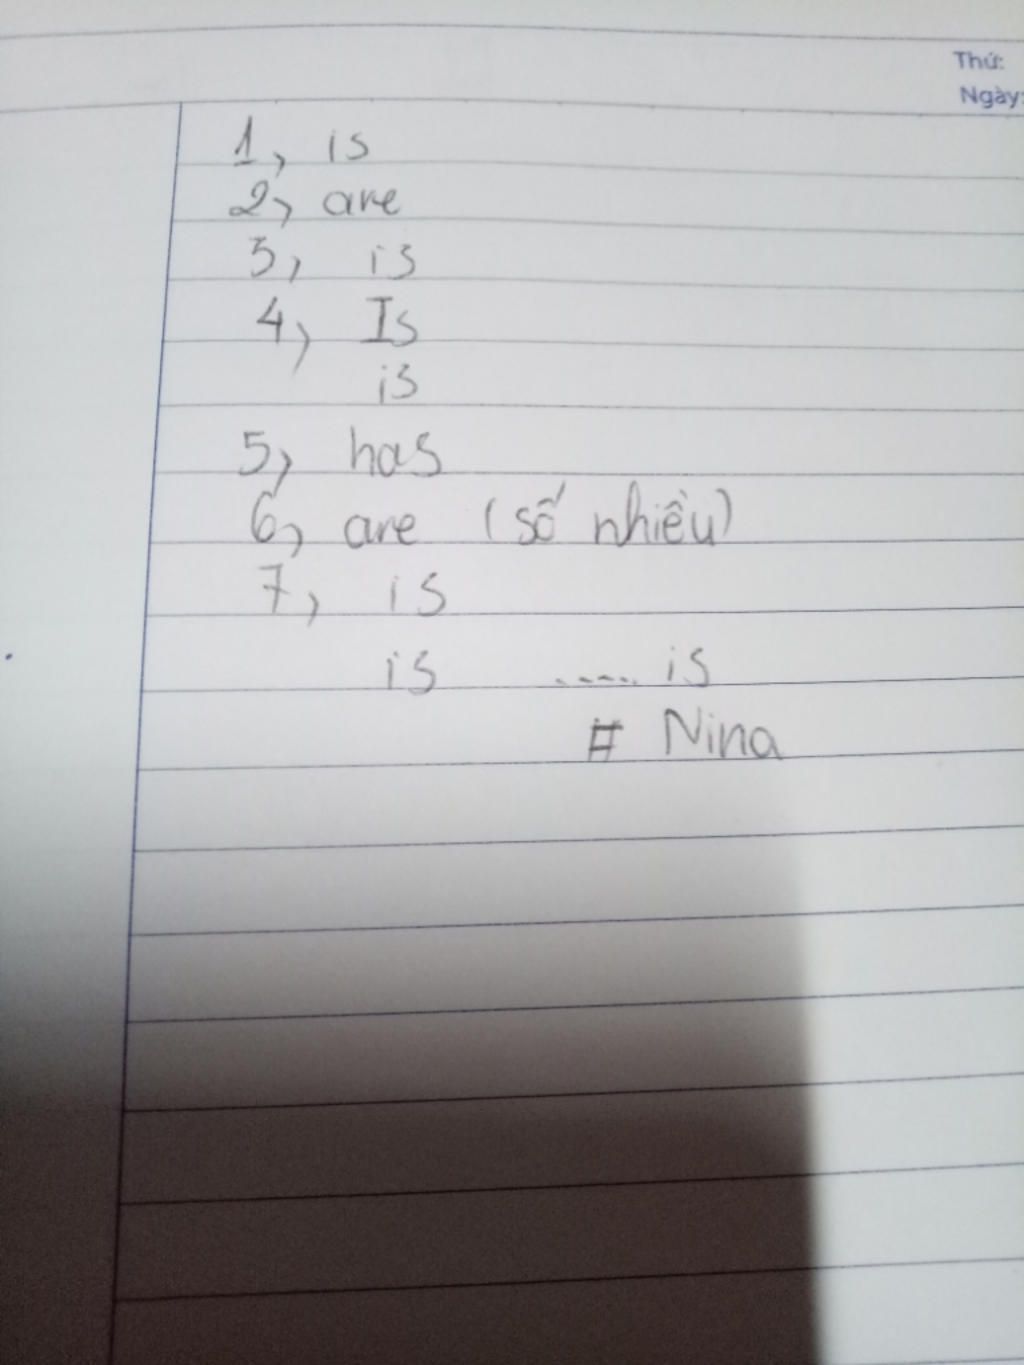 Thứ:
Ngày:
1, is
2, are
3, is
4, Is
is
5, has
6, are (số nhiều)
7, is
is ..... is
# Nina